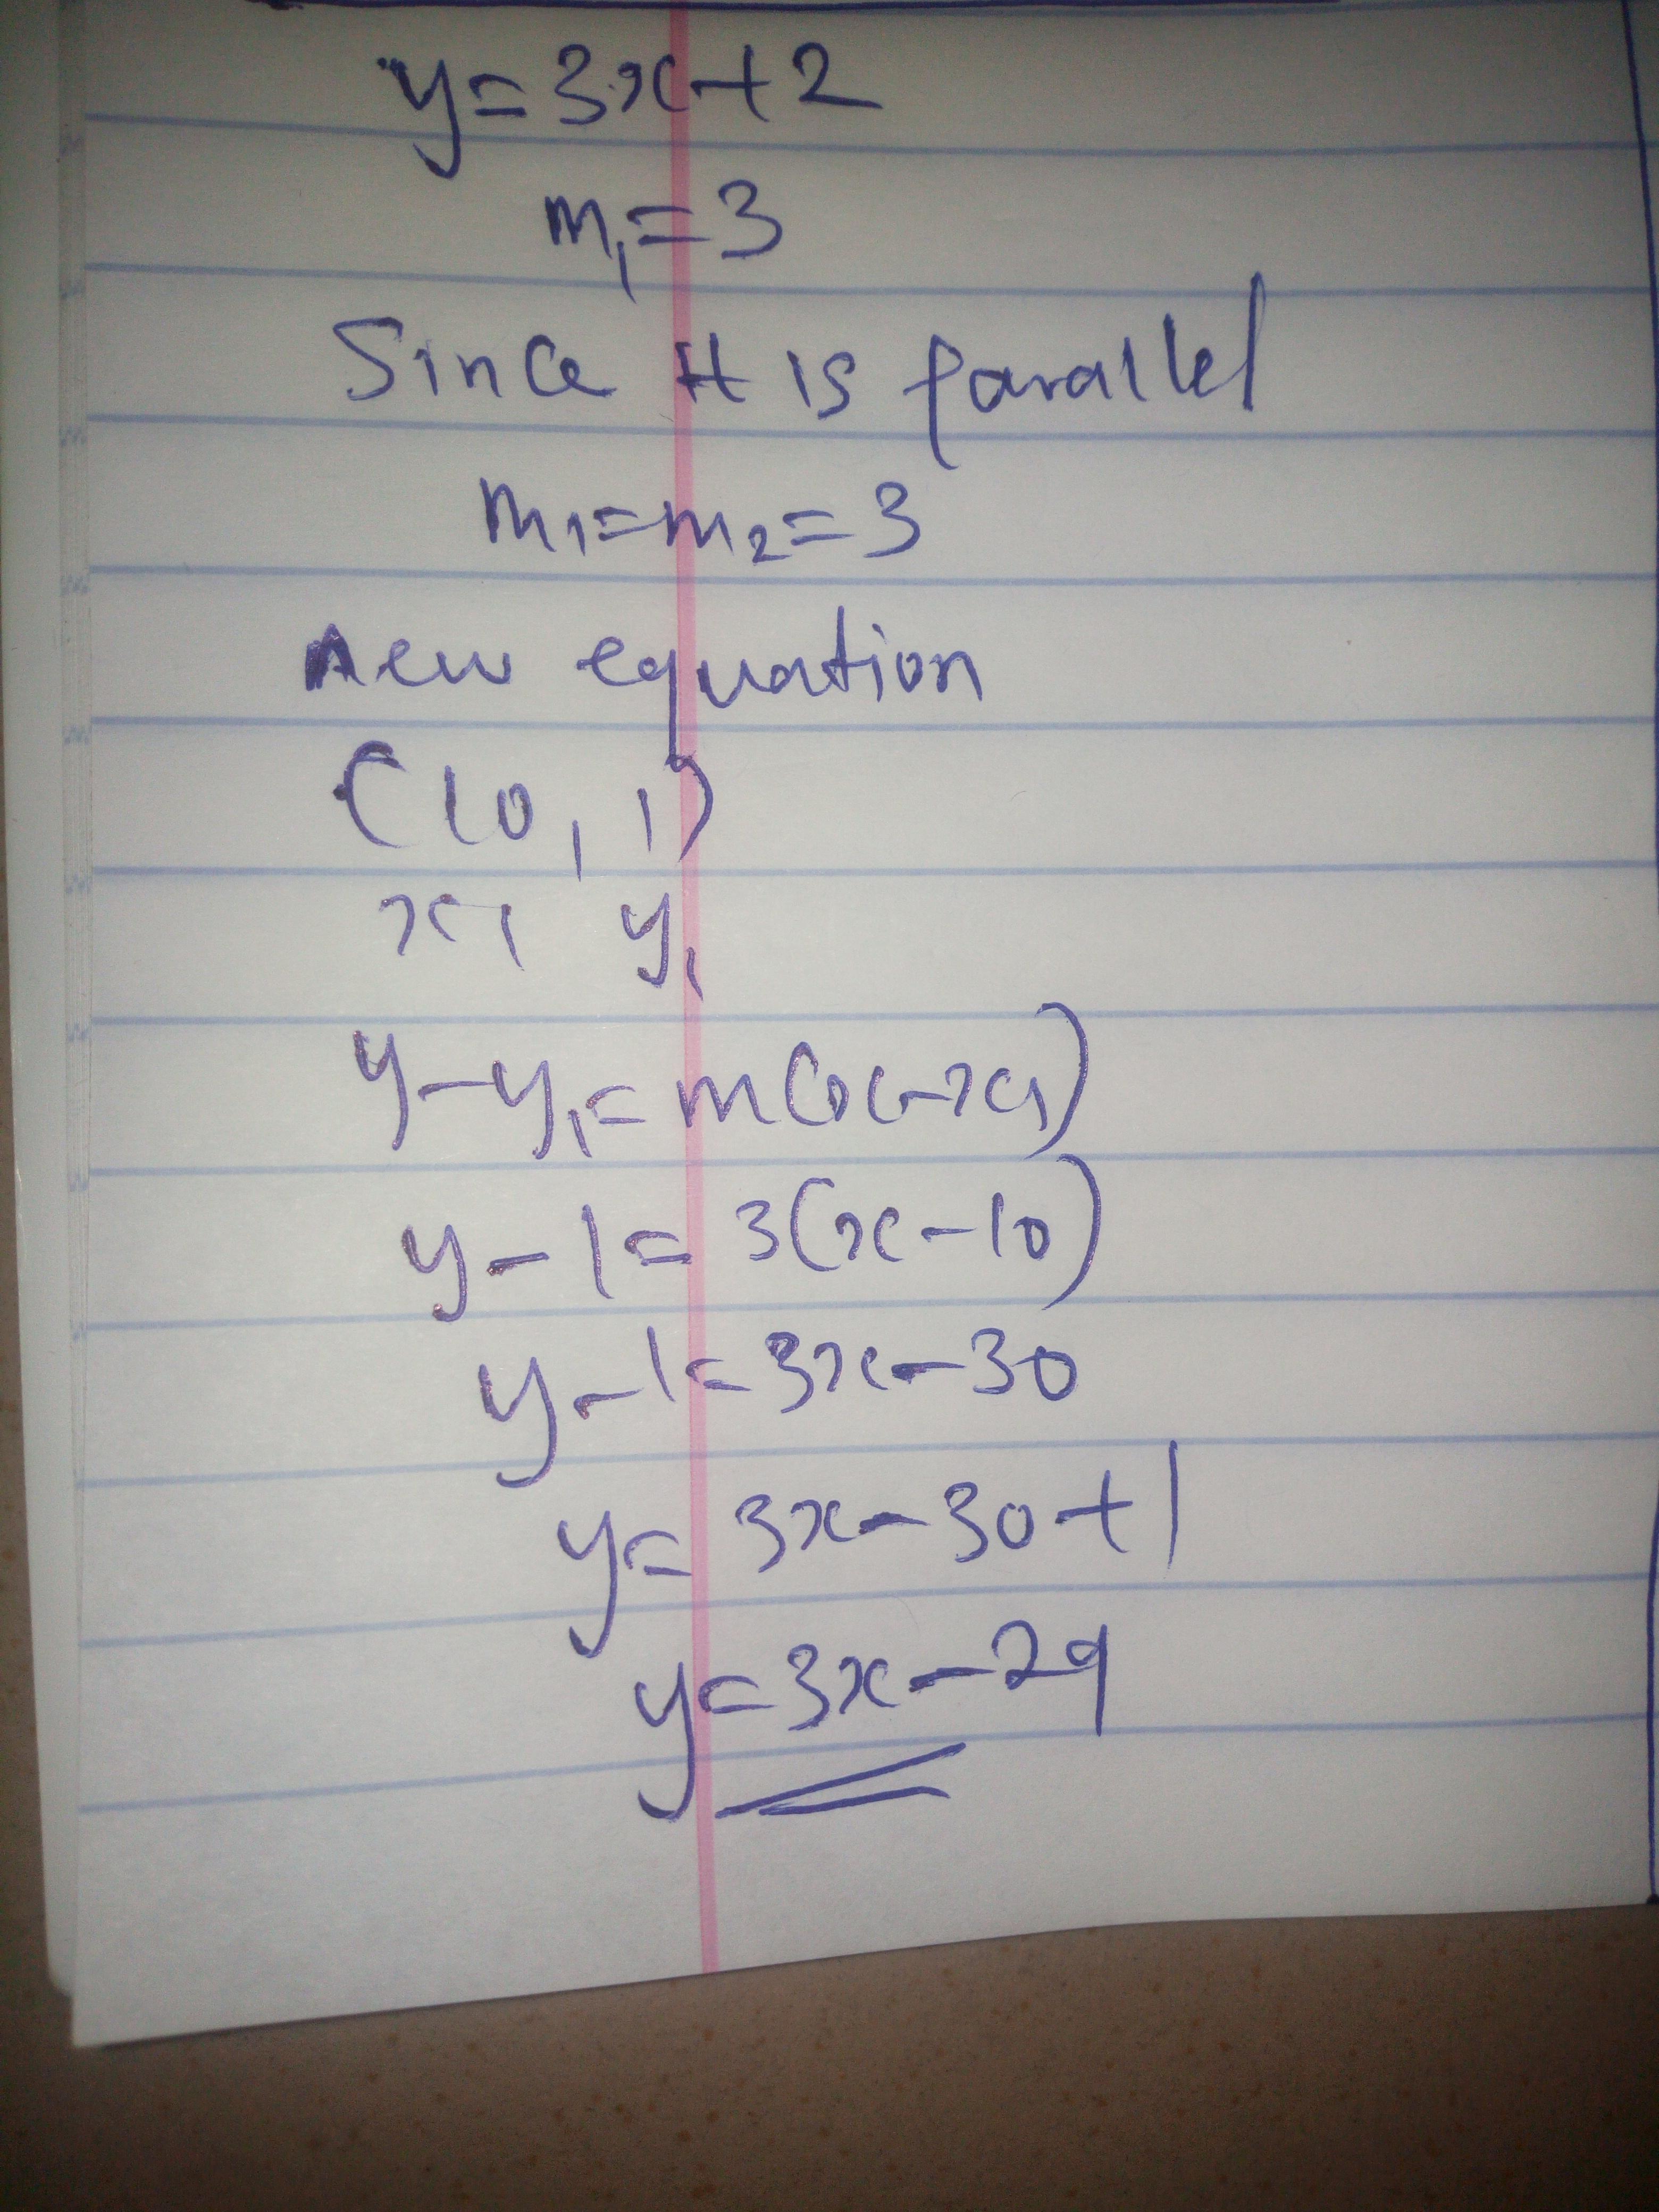 y=3x+2
m₁=3
Since it is parallel
m₁=m₂=3
new equation
(10, 1)
x₁ y₁
y-y₁=m(x-x₁)
y-1=3(x-10)
y-1=3x-30
y=3x-30+1
y=3x-29